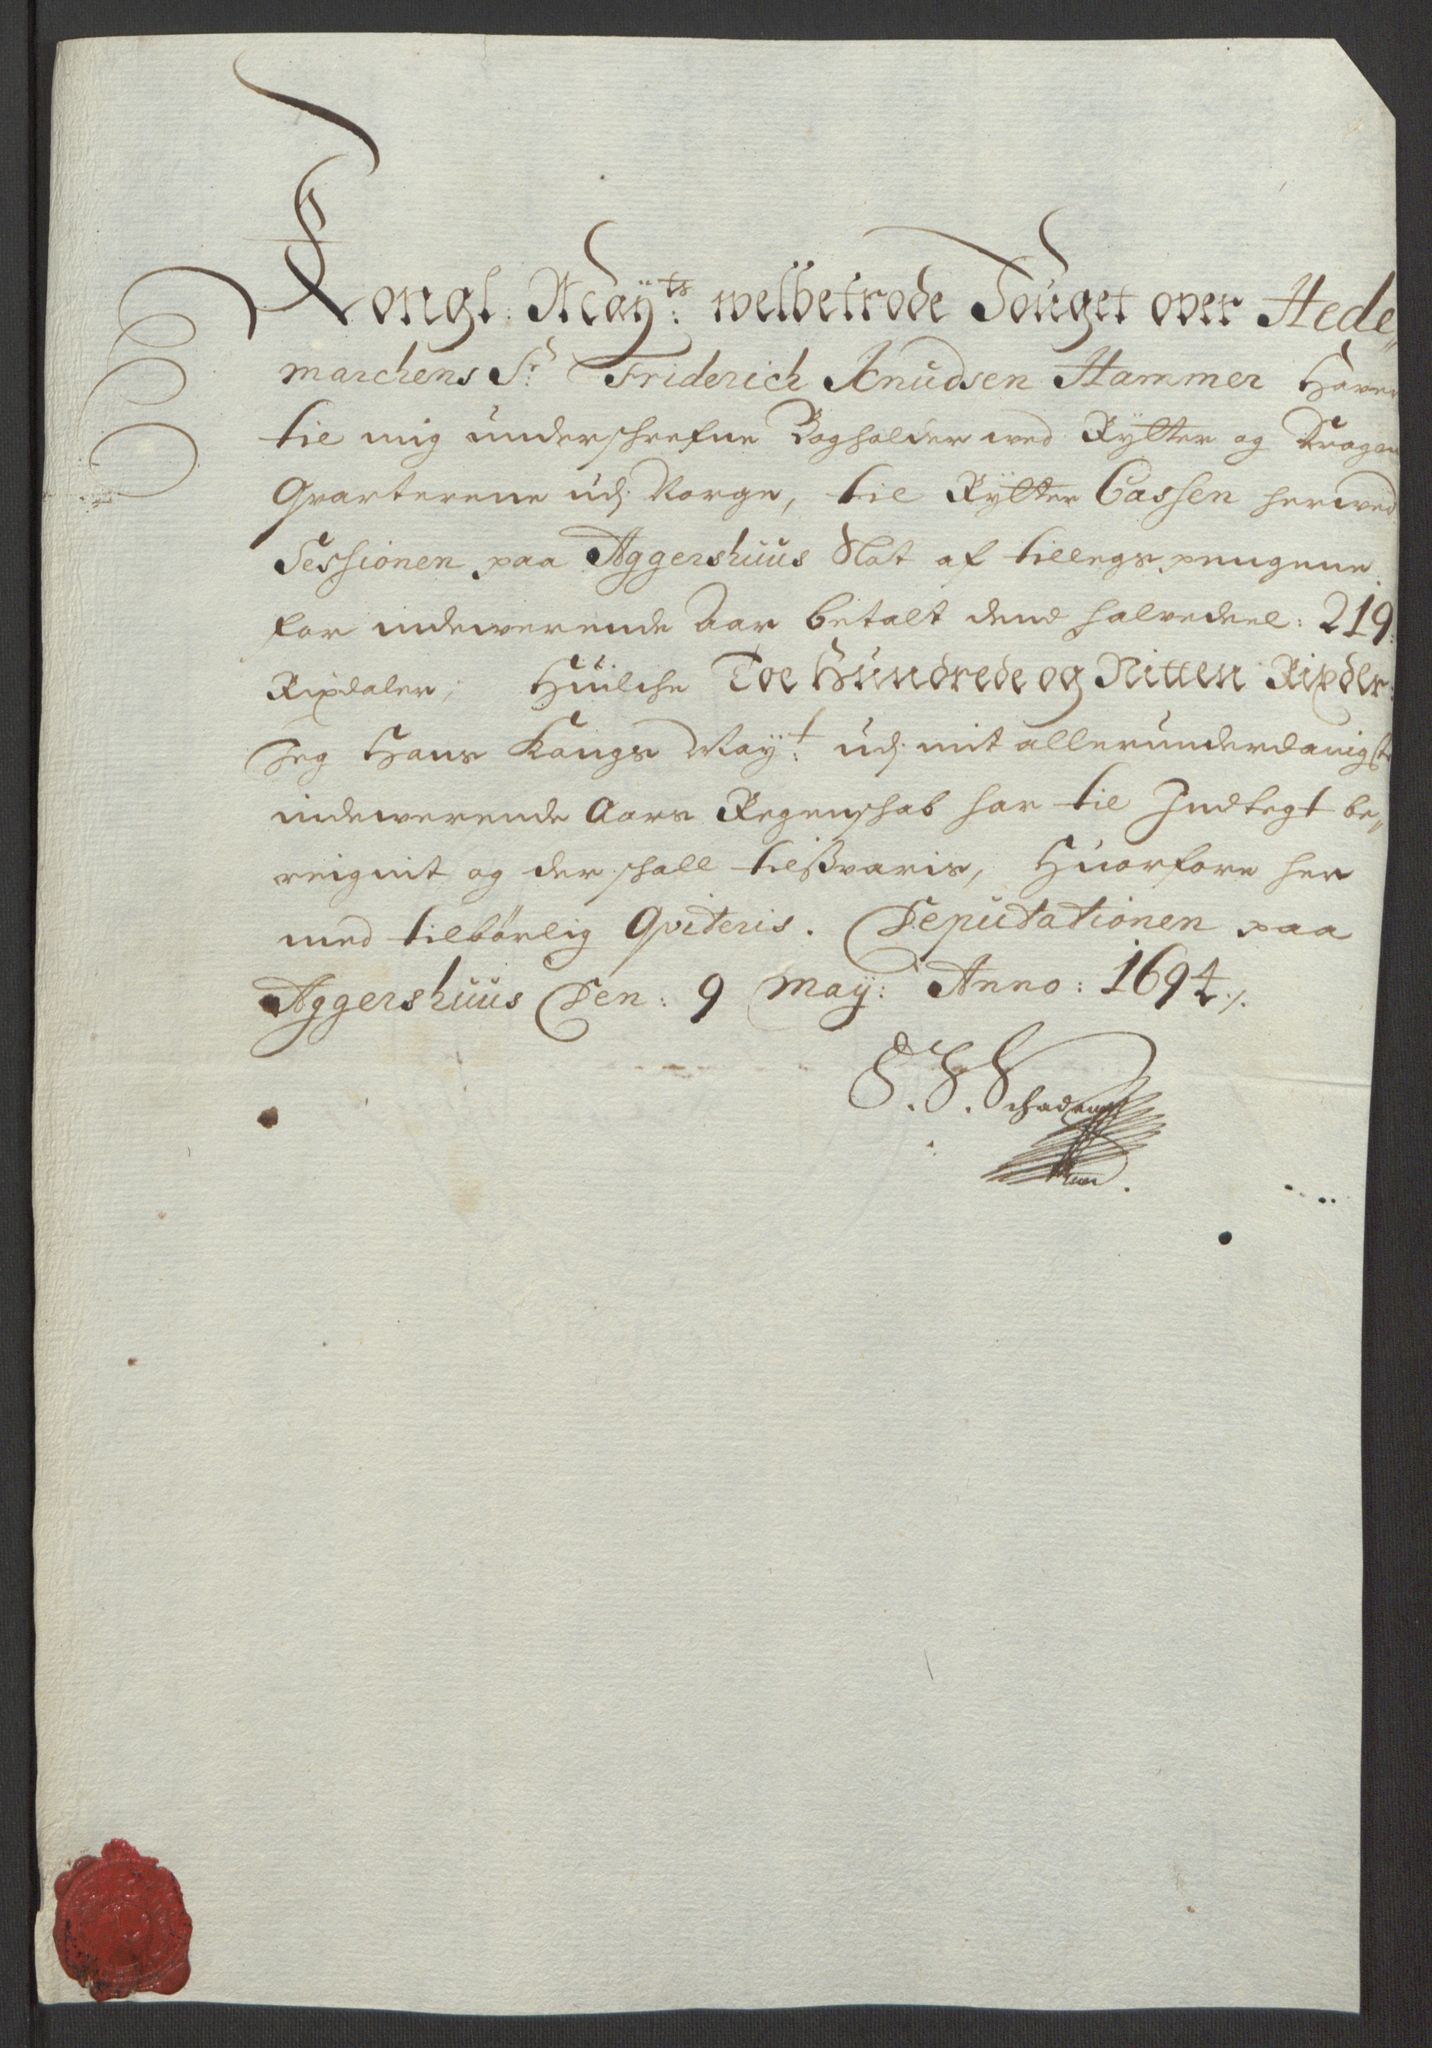 Kongl: Mayts: welbetrode Fouget over Hede„
marchens Sr: Friderich Knudsen Hammer Haver
til mig underschrefne Bogholder wed Rytter og Dragon
Qvarterene udj Norge, til Rytter Cassen herwed
Sessionen paa Aggershuus Slot af tillegs pengene
for indewerende Aar betalt dend halvedeel: 219:
Rixdaler, Huilche Toe Hundrede og Nitten Rixdlr:
Jeg Hans Kongs Mayt: udj mit allerunderdanigste
indewerende Aars Regenschab har til Indtegt be„
reignit og der schall tilßvaris, Huorfore her
med tilbörlig Qviteris. Deputationen paa
Aggershuus Den: 9 May: Anno: 1694 ./.